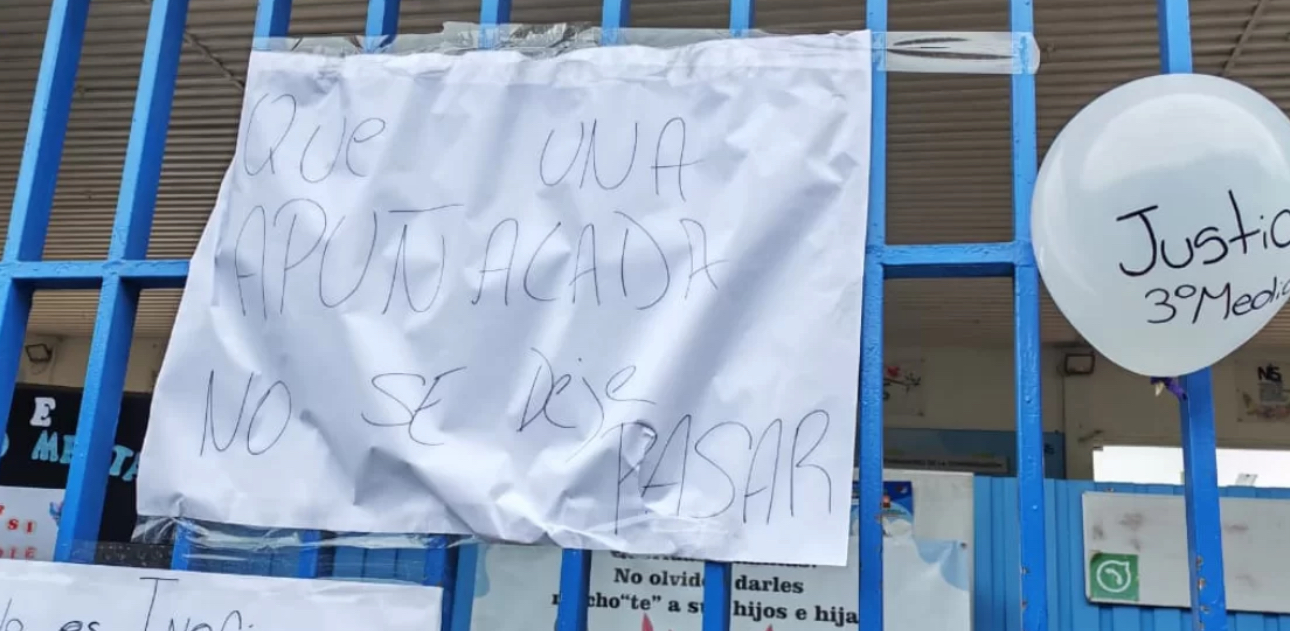 QUe UNA
APUÑACADA
NO SE Deje
PASAR
Justic
3º Medio
E
No olvid darles
cho"te" a su hijos e hija